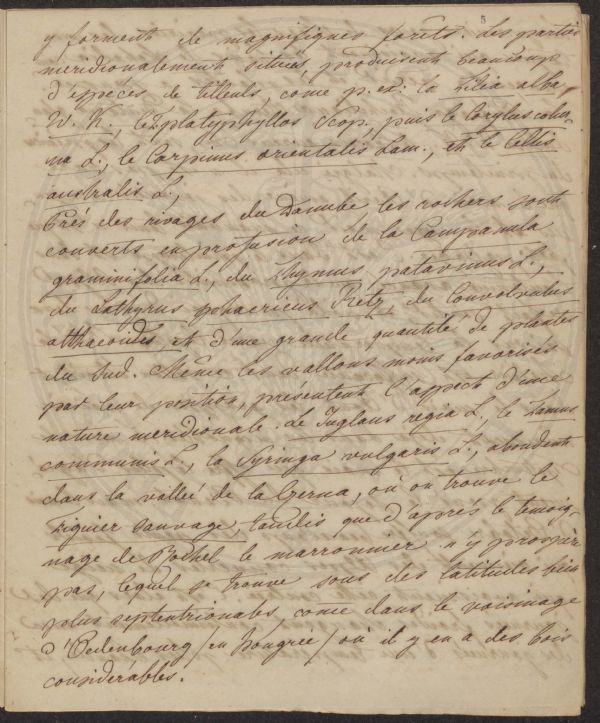 5
y forment de magnifiques forêts. Les parties
meridionalement situées, produisent beaucoup
d'espèces de tilleuls, come p. ex: la Tilia alba,
W. K., le T. platyphyllos Scop., puis le Corylus colur-
na L., le Carpinus orientalis Lam., et le Celtis
australis L.,
Près des rivages du Danube, les rochers sont
couverts en profusion de la Campanula
graminifolia L., du Thymus patavinus L.,
du Lathyrus sphaericus Retz, du Convolvulus
althaeoides, et d'une grande quantité de plantes
du Sud. Même les vallons moins favorisés
par leur position, présentent l'aspect d'une
nature meridionale. Le Juglans regia L., le Tamus
communis L., la Syringa vulgaris L., abondent
dans la vallée de la Cerna, où on trouve le
Figuier sauvage, tandis que d'après le temoig-
nage de Rochel le marronnier n'y prospère
pas, lequel se trouve sous des latitudes bien
plus septentrionales, come dans le voisinage
d'Oedenbourg / en Hongrie / où il y en a des bois
considérables.